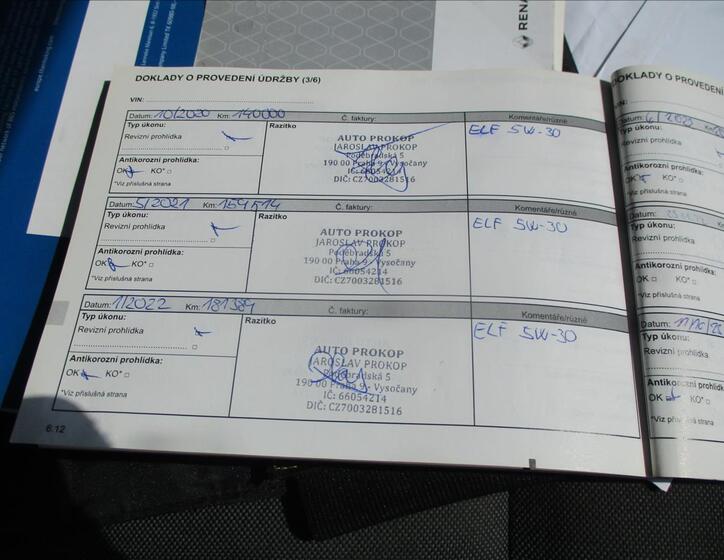 RENA
DOKLADY O PROVEDENÍ ÚDRŽBY (3/6)
VIN:
Datum: 10/2020 Km: 140000 Č. faktury: Komentáře/různé
Typ úkonu: Razítko ELF 5W-30
Revizní prohlídka
AUTO PROKOP
JAROSLAV PROKOP
Poděbradská 5
190 00 Praha 9 - Vysočany
IČ: 66054214
DIČ: CZ7003281516
Antikorozní prohlídka:
OK KO*
*Viz příslušná strana
Datum: 5/2021 Km: Č. faktury: Komentáře/různé
Typ úkonu: Razítko ELF 5W-30
Revizní prohlídka
AUTO PROKOP
JAROSLAV PROKOP
Poděbradská 5
190 00 Praha 9 - Vysočany
IČ: 66054214
DIČ: CZ7003281516
Antikorozní prohlídka:
OK KO*
*Viz příslušná strana
Datum: 1/2022 Km: 181384 Č. faktury: Komentáře/různé
Typ úkonu: Razítko ELF 5W-30
Revizní prohlídka
AUTO PROKOP
JAROSLAV PROKOP
Poděbradská 5
190 00 Praha 9 - Vysočany
IČ: 66054214
DIČ: CZ7003281516
Antikorozní prohlídka:
OK KO*
*Viz příslušná strana
6.12
DOKLADY O PROVEDENÍ
VIN:
Datum:
Typ úkonu:
Revizní prohlídka
Antikorozní prohlídka:
OK KO*
*Viz příslušná strana
Datum:
Typ úkonu:
Revizní prohlídka
Antikorozní prohlídka:
OK KO*
*Viz příslušná strana
Datum:
Typ úkonu:
Revizní prohlídka
Antikorozní prohlídka:
OK KO*
*Viz příslušná strana